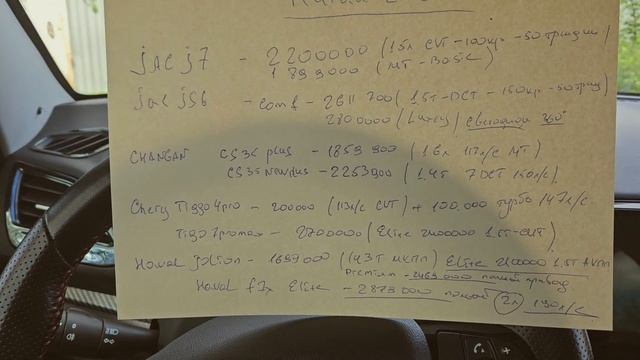 JAC j7 - 2200000 (1.5л CVT - 100кр - 50трица)
1899000 (MT - BASIC)
JAC JS6 - comf - 2611700 (1.5T - DCT - 150кр - 50
2800000 (Luxury) 360°
CHANGAN CS35 plus - 1859900 (1.6л 117л/с MT)
CS35 New plus - 2253900 (1.4T 7DCT 150л/с)
Chery Tiggo 4 pro - 200000 (113л/с CVT) + 100.000 турбо 147 л/с
Tigo 7 promax - 2700000 (Elite 2400000 1.5T-CVT)
Haval jolion - 1699000 (143T МКПП) Elite 2100000 1.5T
Premium - 2469000 привод
Haval f7x Elite - 2873000 2л 190л/с